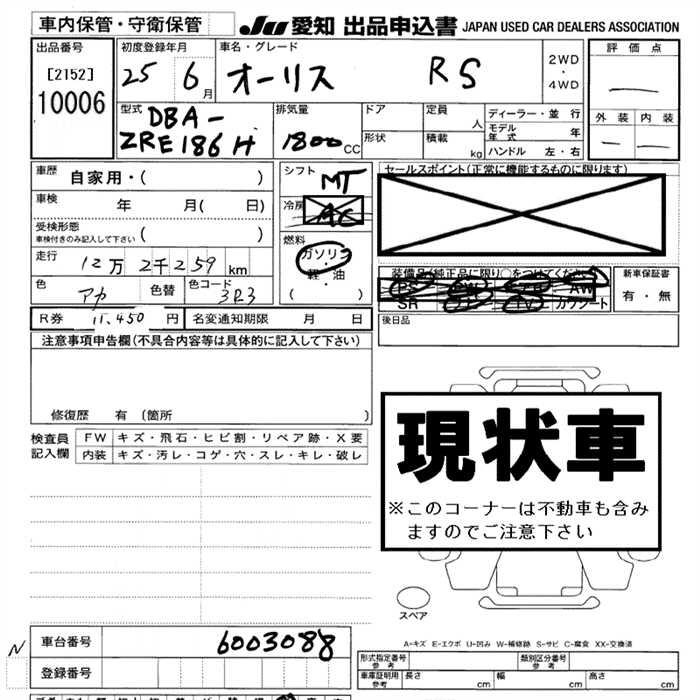 車内保管・守衛保管
JU 愛知 出品申込書 JAPAN USED CAR DEALERS ASSOCIATION
出品番号
[2152]
10006
初度登録年月
25 6月
車名・グレード
オーリス RS
2WD
・
4WD
評価点
外装 内装
型式
DBA-
ZRE186H
排気量
1800CC
ドア
形状
定員 人
積載 kg
ディーラー・並行
モデル年式 年
ハンドル 左・右
車歴 自家用・( )
車検 年 月( 日)
受検形態
車検付きのみ記入して下さい ( )
走行 12万2千259km
色 アカ 色替 色コード 3R3
シフト MT
冷房 AC
燃料 ガソリン
・
軽・油
( )
セールスポイント(正常に機能するものに限ります)
装備品(純正品に限り○をつけてください)
PS PW AW
SR TV カワシート
新車保証書
有・無
後日品
R券 11,450円 名変通知期限 月 日
注意事項申告欄(不具合内容等は具体的に記入して下さい)
修復歴 有(箇所 )
検査員記入欄
FW キズ・飛石・ヒビ割・リペア跡・X要
内装 キズ・汚レ・コゲ・穴・スレ・キレ・破レ
現状車
※このコーナーは不動車も含み
ますのでご注意下さい
スペア
A-キズ E-エクボ U-凹み W-補修跡 S-サビ C-腐食 XX-交換済
N
車台番号 6003088
登録番号
形式指定番号
参考
類別区分番号
参考
車庫証明用
参考
長さ cm 幅 cm 高さ cm